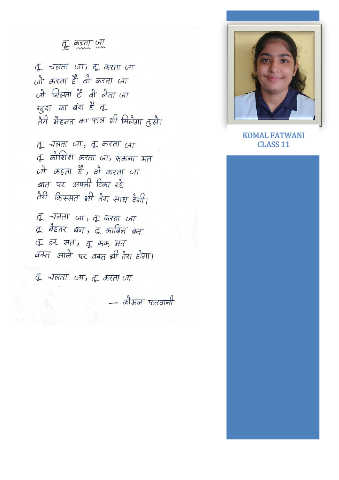 तू करता जा
तू चलता जा, तू करता जा
जो करता है वो करता जा
जो मिलता है वो लेता जा
खुदा का बंदा है तू
तेरी मेहनत का फल भी मिलेगा तुझे।
तू चलता जा, तू करता जा
तू कोशिश करता जा, रुकना मत
जो कहता है, वो करता जा
बात पर अपनी टिका रह
तेरी किस्मत भी तेरा साथ देगी,
तू चलता जा, तू करता जा
तू बेहतर बन, तू काबिल बन
तू डर मत, तू रुक मत
वक्त आने पर वक्त भी तेरा होगा।
तू चलता जा, तू करता जा
— कोमल फतवानी
KOMAL FATWANI
CLASS 11